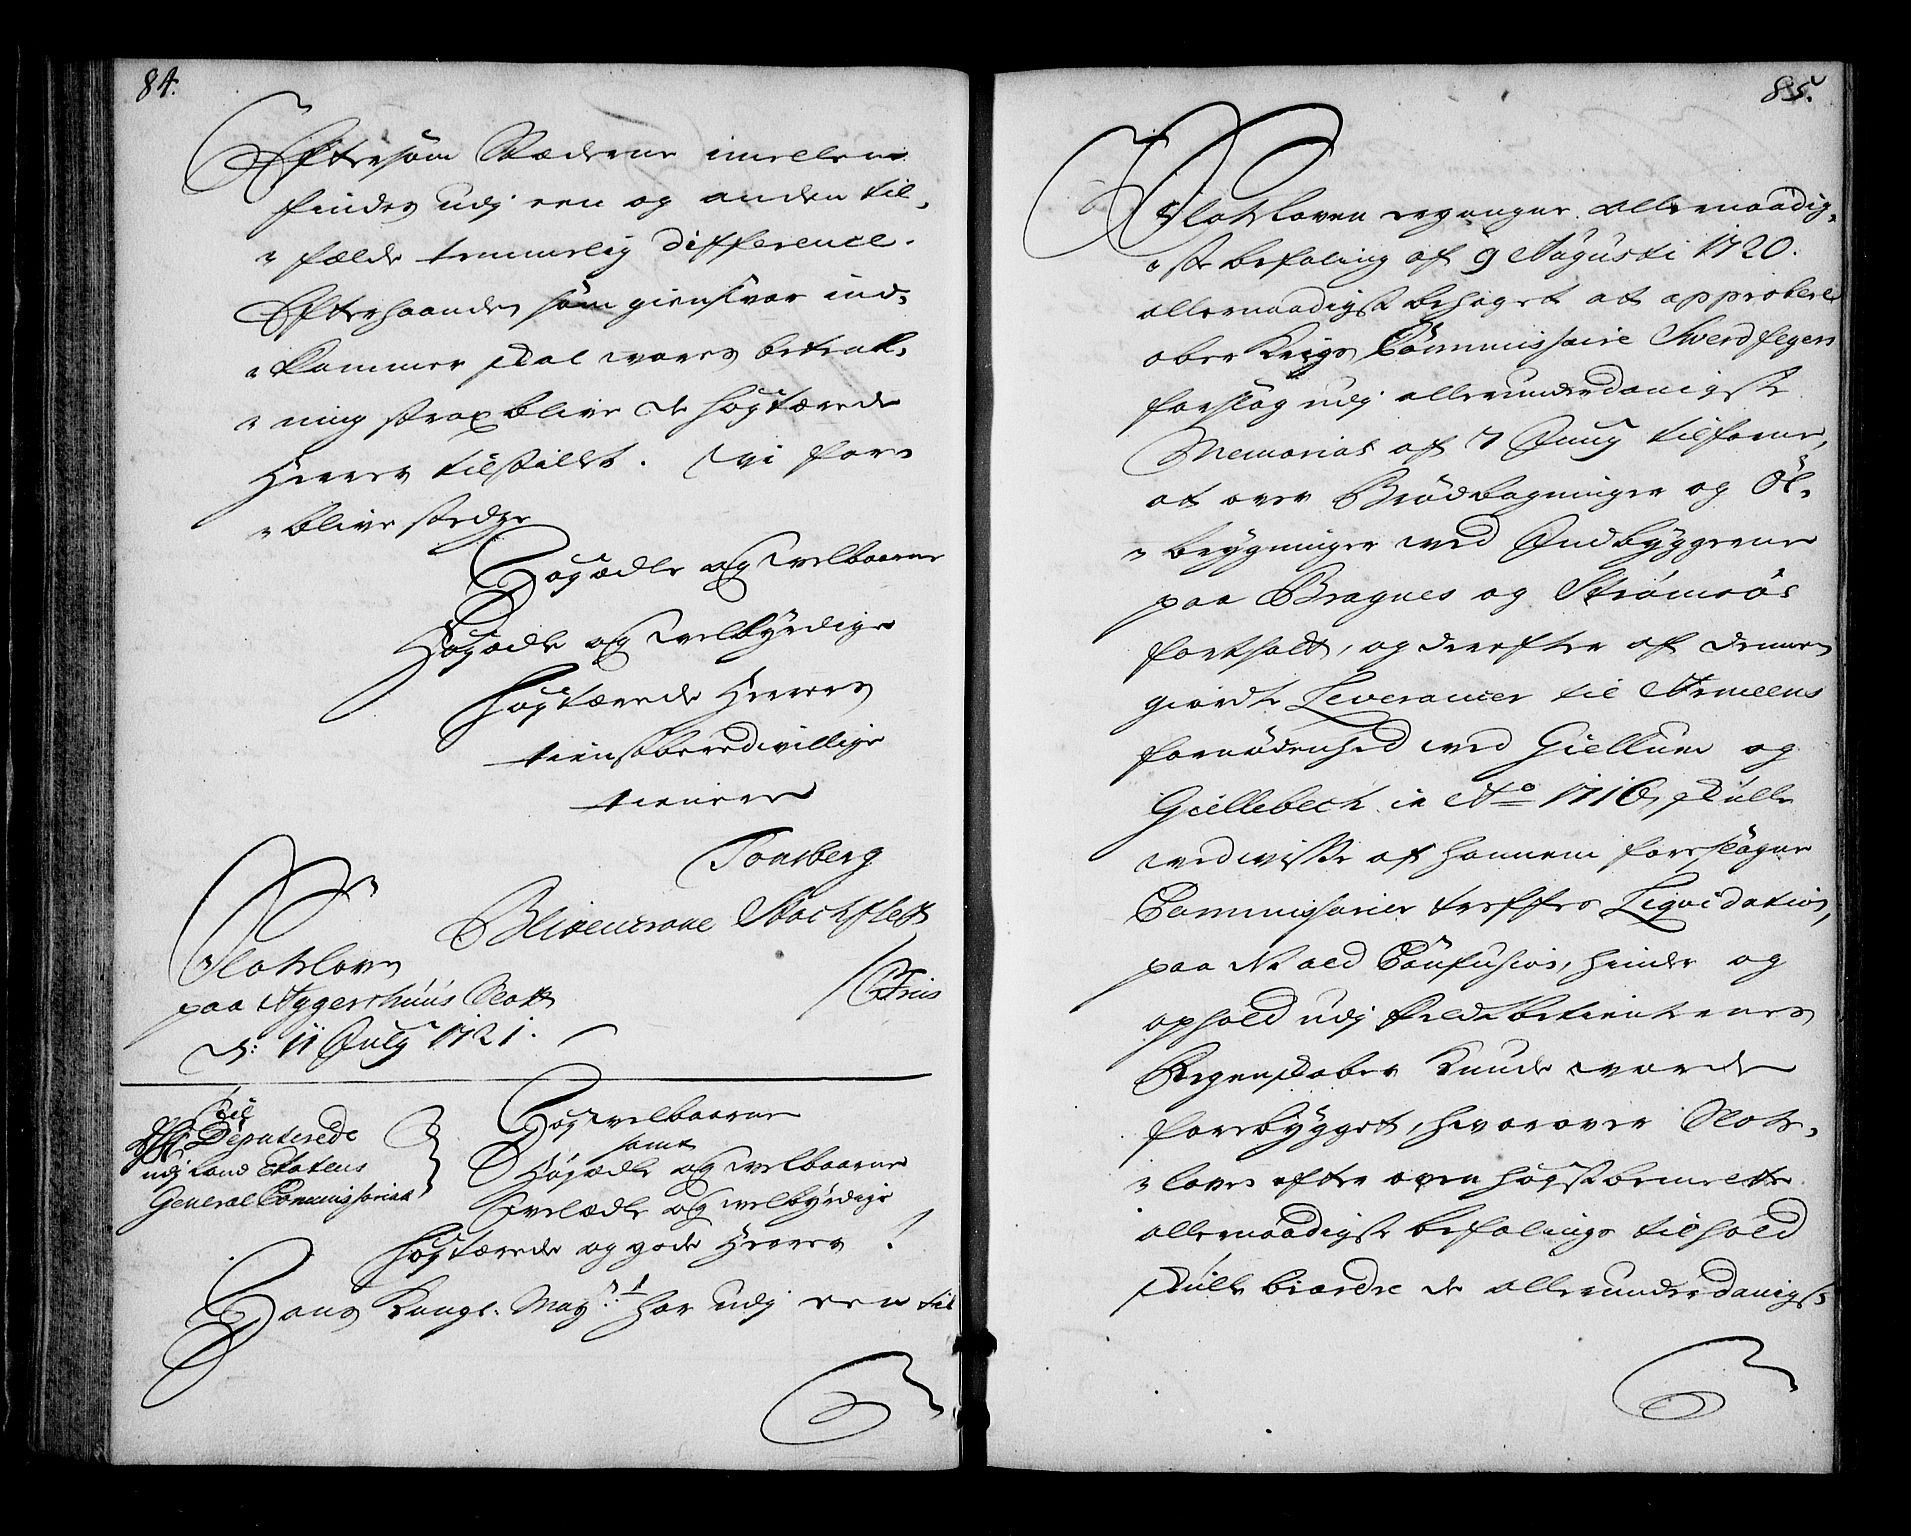 84.
Eftersom Stæderne imellem
findes udj een og anden til-
fælde temmelig difference.
Efterhaanden som giensvar ind-
kommer skal vores betenk-
ning strax blive de høgtærede
Herrer tilstillet. Vi for-
blive stedze
Høgædle og Velbaarne
Høgædle og Velbyrdige
høgtærede Herres
tienstberedvillige
tienere
Tonsberg
Blixencrone Stochfleth
Slotsloven
paa Aggershuus Slott
/ CFriis
d: 11 July 1721.
Til
De Deputerede
udj Land Etatens
General Commissariat
Høgvelbaarne
samt
Høgædle og Velbaarne
Velædle og Velbyrdige
høgtærede og gode Herrer !
Hans Kongl. Mayt: har udj een til
85.
Slotsloven ergangne allernaadig-
ste befaling af 9 Augusti 1720.
allernaadigst behaget at approbere
ober Krigs Commissaire Sverdfegers
forslag udj allerunderdanigste
Memorial af 7 Juny tilforne,
at over Brødbagninger og Øl-
brygninger ved Indbyggerne
paa Bragnes og Strømsøe
forholdt, og derefter af dennem
giordte Leverancer til Armeens
fornødenhed ved Giellum og
Giellebech in Ao 1716, skulle
ved visse af hannem foreslagne
Commissarier treffes Liqvidation,
paa det ald Confusion, hinder og
ophold udj feldtbetienternes
Regenskaber kunde vorde
forebygget, hvorover Slots-
loven efter oven høystbemelte
allernaadigste befalings tilhold
skulle beordre de allerunderdanigst